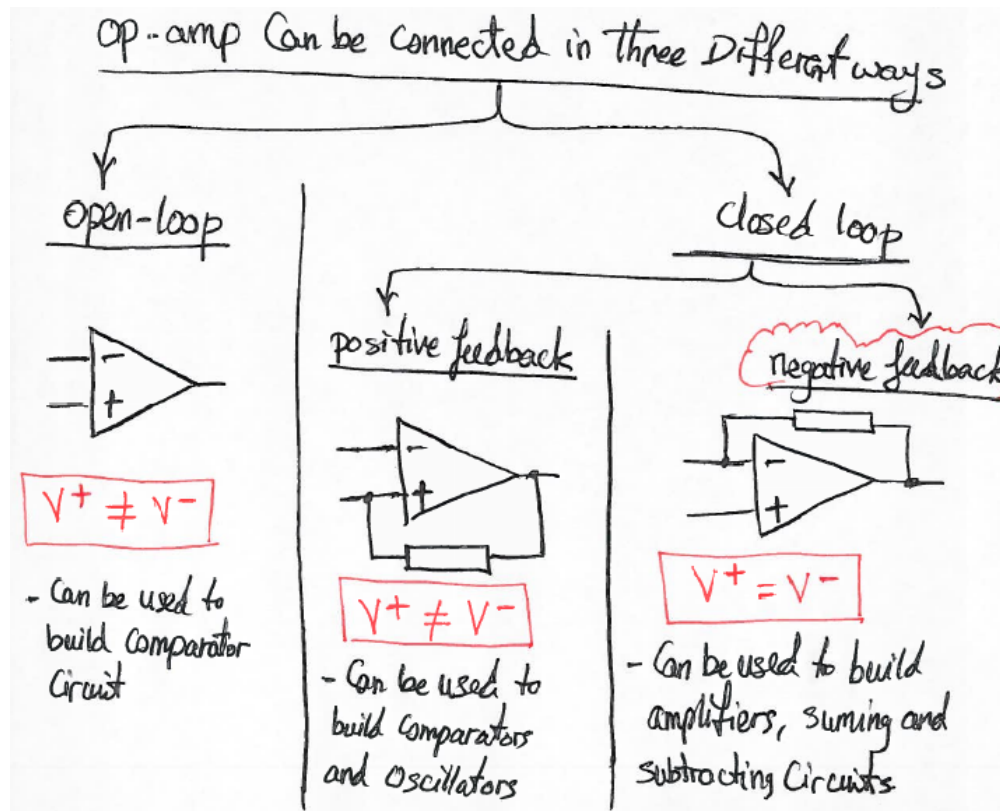 op-amp Can be Connected in three Different ways
open-loop
-
+
V+ ≠ V-
- Can be used to
build Comparator
Circuit
Closed loop
positive feedback
-
+
V+ ≠ V-
- Can be used to
build Comparators
and Oscillators
negative feedback
-
+
V+ = V-
- Can be used to build
amplifiers, Suming and
Subtracting Circuits